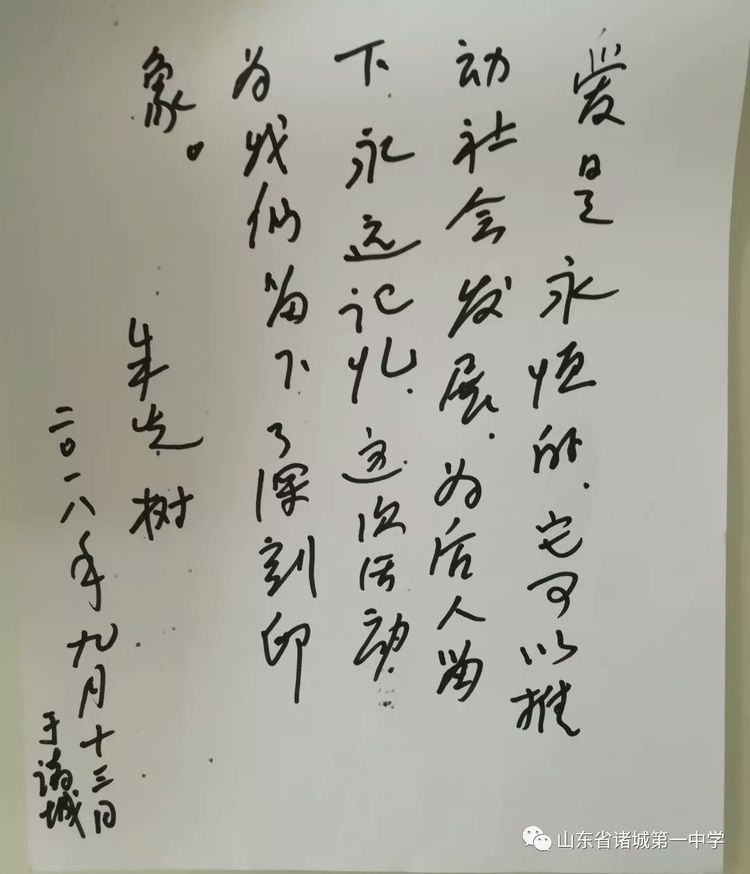 爱是永恒的.它可以推
动社会发展.为后人留
下永远记忆.这次活动
为我们留下了深刻印
象。
朱先树
二〇一八年九月十三日
于诸城
山东省诸城第一中学